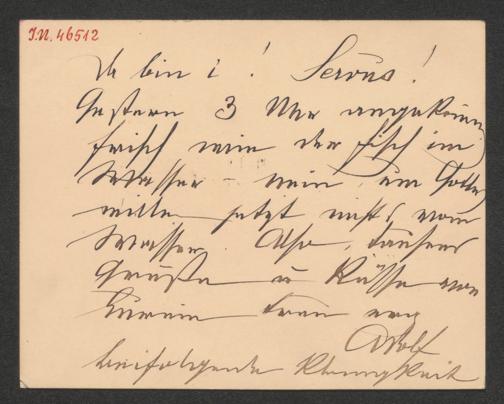 J.N. 46512
Da bin i! Servus!
Gestern 3 Uhr angekommen
frisch wie der Fisch im
Wasser – nein, um Gottes
willen jetzt nichts vom
Wasser. Also, tausend
Grüße u Küsse von
Eurem treu erg
Adolf
beifolgende Kleinigkeit